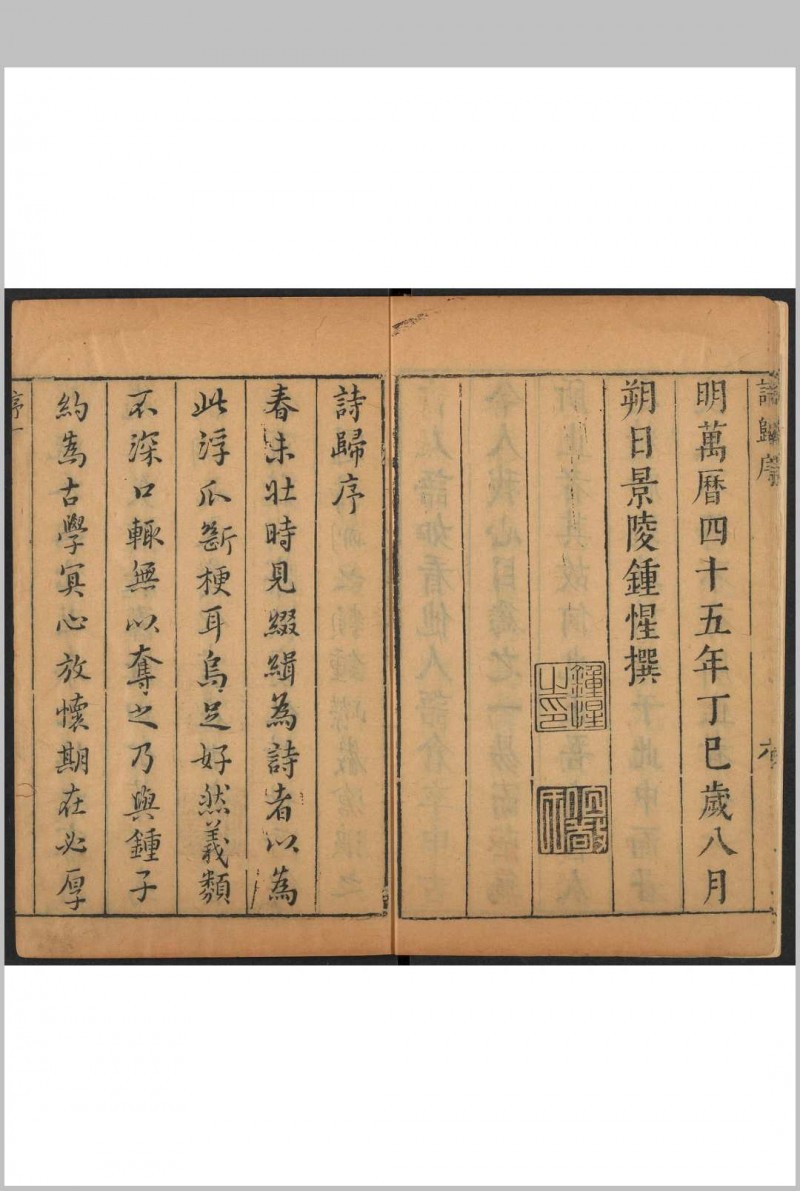 詩歸序
明萬曆四十五年丁巳歲八月
朔日景陵鍾惺撰
鍾惺之印
詩歸序
春未壯時見綴緝為詩者以為
此浮瓜斷梗耳烏足好然義類
不深口輒無以奪之乃與鍾子
約為古學冥心放懷期在必厚
序一